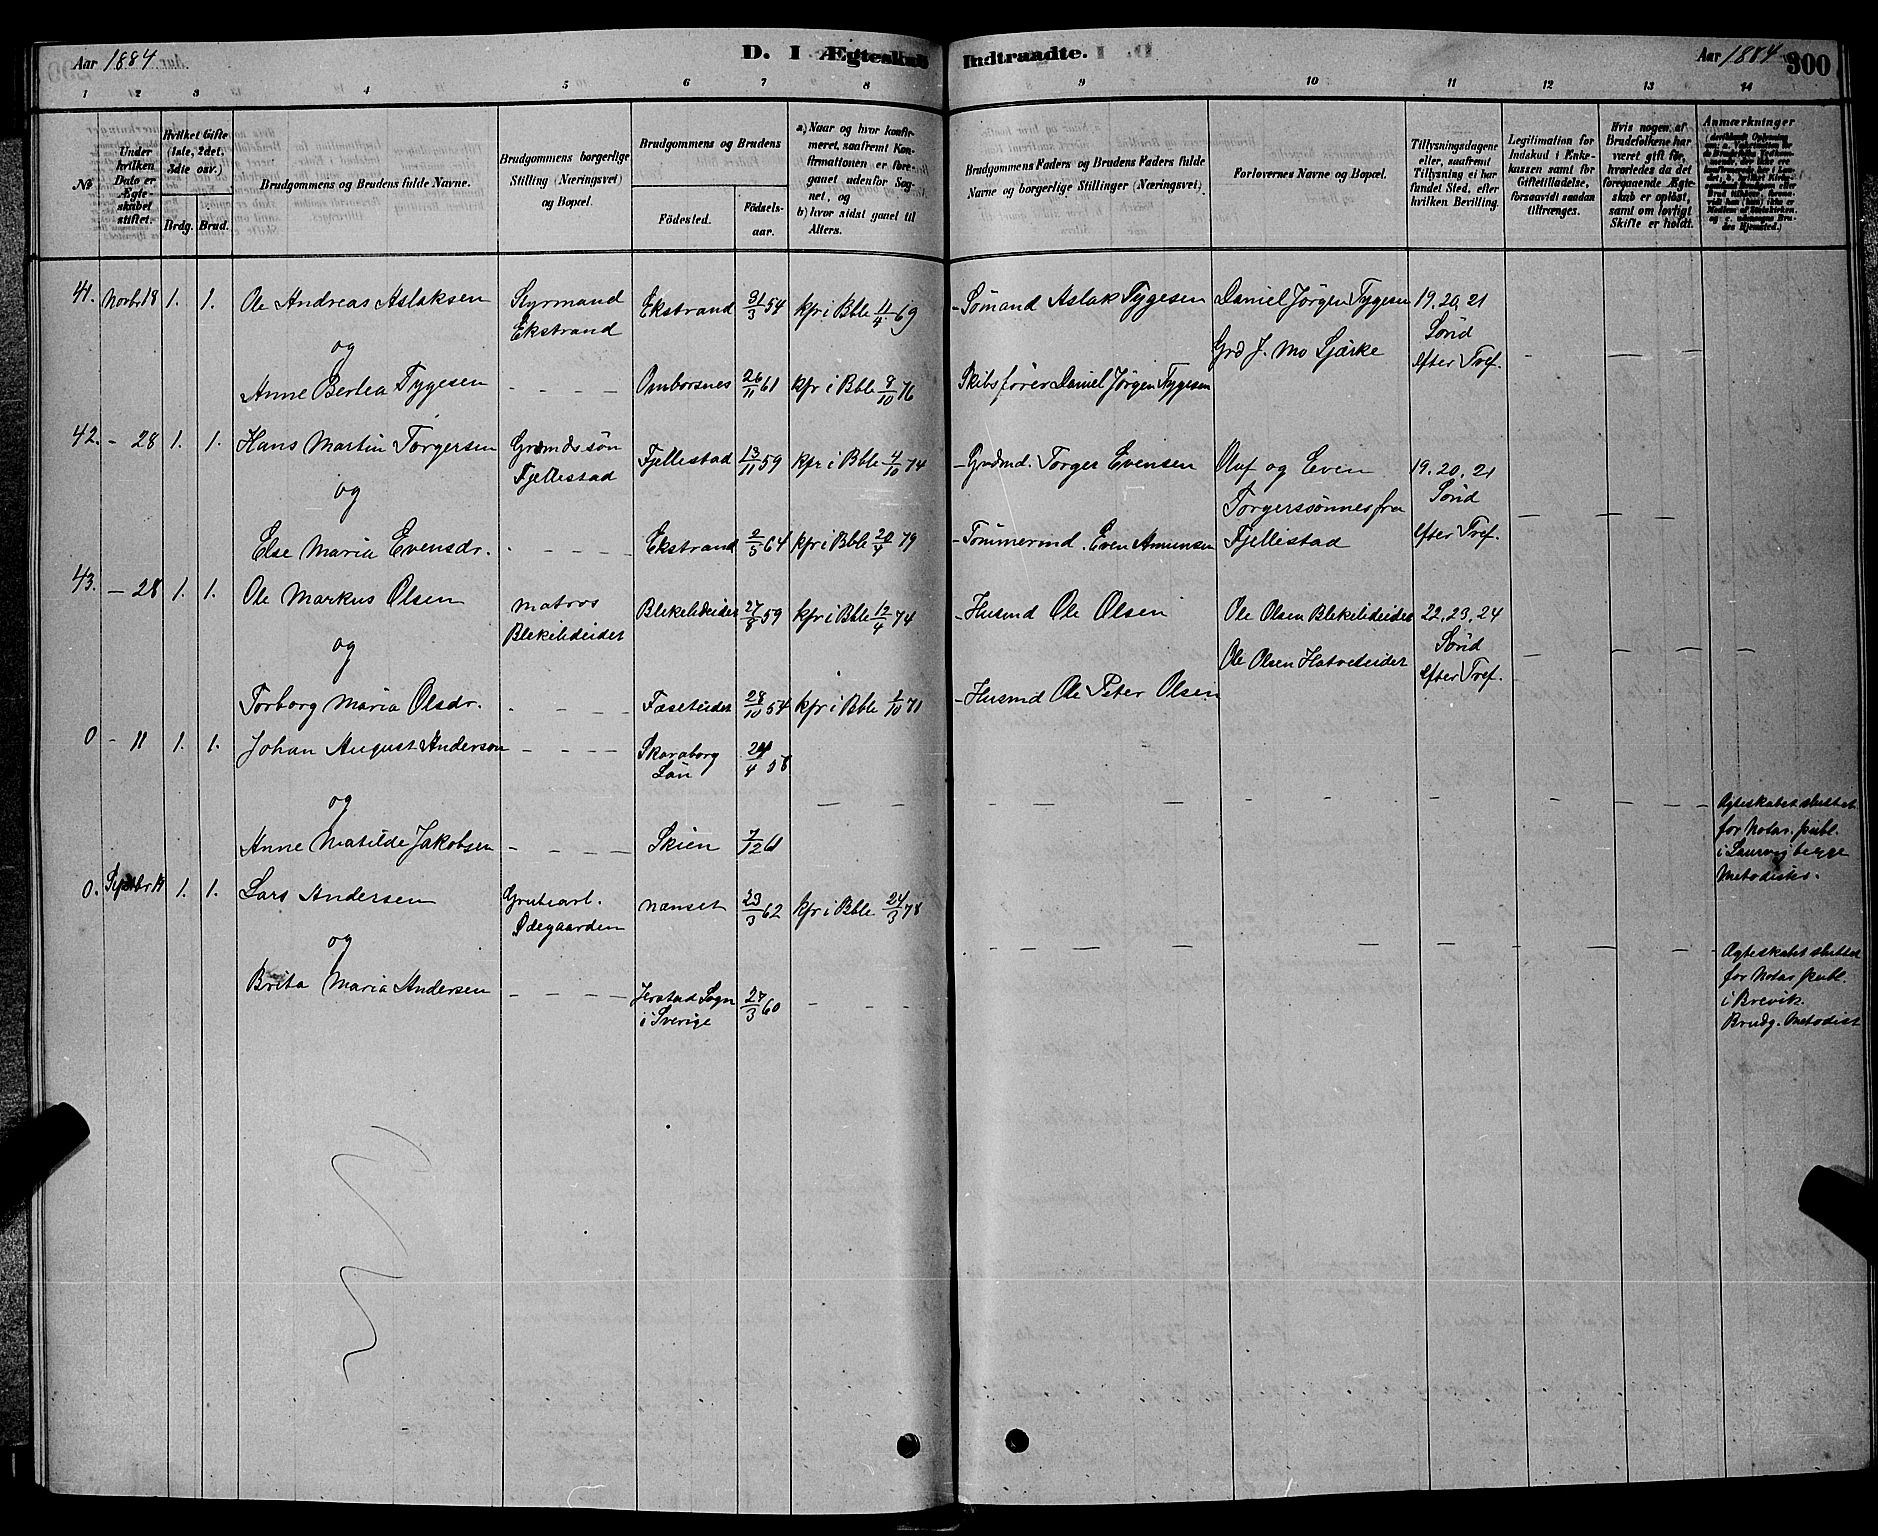 Aar 1884
D. I Ægteskab Indtraadte.
Aar 1884
300
1 2 3 4 5 6 7 8 9 10 11 12 13 14
No
Under hvilken Dato er Ægteskabet stiftet.
Hvilket Gifte (1ste, 2det, 3die osv.)
Brdg. Brud.
Brudgommens og Brudens fulde Navne.
Brudgommens borgerlige Stilling (Næringsvei) og Bopæl.
Brudgommens og Brudens
Födested.
Födselsaar.
a) Naar og hvor konfirmeret, saafremt Konfirmationen er foregaaet udenfor Sognet, og
b) hvor sidst gaaet til Alters.
Brudgommens Faders og Brudens Faders fulde Navne og borgerlige Stillinger (Næringsvei).
Forlovernes Navne og Bopæl.
Tillysningsdagene eller, saafremt Tillysning ei har fundet Sted, efter hvilken Bevilling.
Legitimation for Indskud i Enkekassen samt for Giftetilladelse, forsaavidt saadan tiltrænges.
Hvis nogen af Brudefolkene har været gift för, hvorledes da det foregaaende Ægteskab er oplöst, samt om lovligt Skifte er holdt.
Anmærkninger
41. Novbr 18 1. 1. Ole Andreas Aslaksen
Styrmand Ekstrand
Ekstrand 31/3 54 kfr i Bble 11/4 69
- Sømand Aslak Tygesen
Daniel Jörgen Tygesen
Grd J. Mo Sjærke
19. 20. 21
Sønd
efter Tref.
og
Anne Bertea Tygesen - - - - Omborsnes 26/11 61 kfr i Bble 8/10 76
Skibsfører Daniel Jörgen Tygesen
42. - 28 1. 1. Hans Martin Torgersen
Grdmdssøn Fjellestad
Fjellestad 13/11 59 kfr i Bble 4/10 74
- Grdmd. Torger Evensen
Oluf og Even
Torgerssønnes fra
Fjellestad
19. 20. 21
Sønd
efter Tref.
og
Else Maria Evensdr. - - - - Ekstrand 2/5 64 kfr i Bble 20/4 79
- Tömmermd. Even Amunsen
43. - 28 1. 1. Ole Markus Olsen
Matros Blekebdeidet
Blekebdeidet 27/8 59 kfr i Bble 12/4 74
- Husmd Ole Olsen
Ole Olsen Blekebdeidet
Ole Olsen Hatveteidet
22. 23. 24
Sønd
efter Tref.
og
Torborg Maria Olsdr. - - - - Fæseteidet 28/10 54 kfr i Bble 1/10 71
- Husmd Ole Peter Olsen
0 - 11 1. 1. Johan August Anderson - - - -
Skaraborg
Län
24/4 58
og
Anne Matilde Jakobsen - - - - Skien 7/12 61
Ægteskabet sluttet
for Notar. publ.
i Laurvig begge
Metodister.
0. Septbr 14 1. 1. Lars Andersen
Grubearb.
Ødegaarden
Nanset 23/3 62 kfr i Bble 24/3 78
og
Brita Maria Andersen - - - -
Jerstad Sogn
i Sverige
27/3 60
Ægteskabet sluttet
for Notar. publ.
i Brevik.
Brudg. Metodist